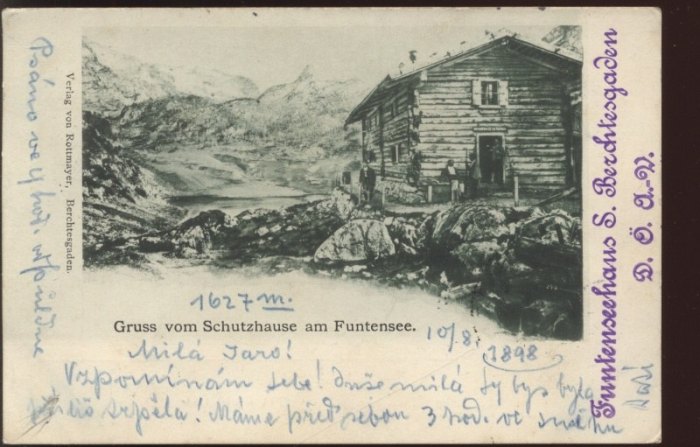 Psáno ve 4 hod. odpoledne
Verlag von Rottmayer, Berchtesgaden.
Funtenseehaus S. Berchtesgaden
D. Ö. A.-V.
1627 m.
Gruss vom Schutzhause am Funtensee.
10/8. 1898
Milá Jaro!
Vzpomínám tebe! Duše milá ty bys byla
trpěla! Máme před sebou 3 hod. ve sněhu